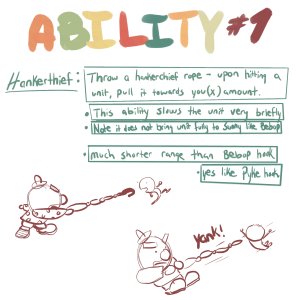 ABILITY #1
Hankerthief: Throw a hankerchief rope - upon hitting a
unit, pull it towards you (x) amount.
• This ability slows the unit very briefly
• Note it does not bring unit fully to Sunny like Bebop
• much shorter range than Bebop hook
• yes like Pyke hook
yank!